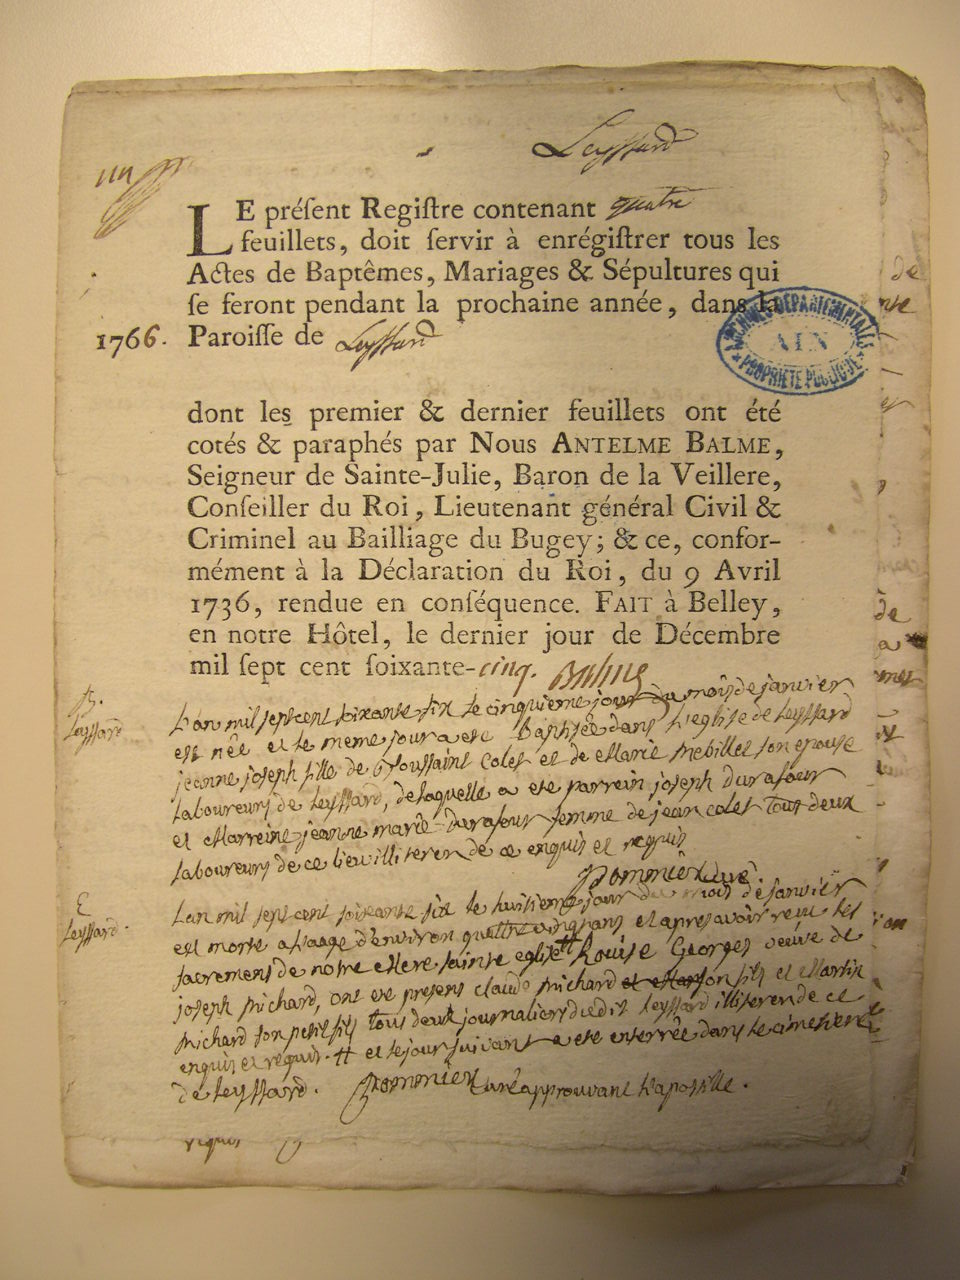 Leyssard
un
LE préſent Regiſtre contenant quatre
feuillets, doit ſervir à enrégiſtrer tous les
Actes de Baptêmes, Mariages & Sépultures qui
ſe feront pendant la prochaine année, dans la
1766. Paroiſſe de Leyssard
ARCHIVES DÉPARTEMENTALES
AIN
PROPRIÉTÉ PUBLIQUE
dont les premier & dernier feuillets ont été
cotés & paraphés par Nous ANTELME BALME,
Seigneur de Sainte-Julie, Baron de la Veillere,
Conſeiller du Roi, Lieutenant général Civil &
Criminel au Bailliage du Bugey; & ce, confor-
mément à la Déclaration du Roi, du 9 Avril
1736, rendue en conſéquence. FAIT à Belley,
en notre Hôtel, le dernier jour de Décembre
mil ſept cent ſoixante-cinq. Balme
B.
Leyssard
L'an mil sept cent soixante six le cinquieme jour du mois de janvier
est née et le meme jour a eté baptisée dans l'eglise de Leyssard
jeanne joseph fille de toussaint colet et de Marie Mebillet son epouse
laboureurs de Leyssard, de laquelle a eté parrein joseph durafour
et Marreine jeanne marie durafour femme de jean colet tous deux
laboureurs de ce lieu illiteren de ce enquis et requis
Pommier curé.
E
Leyssard.
L'an mil sept cent soixante six le huitieme jour du mois de janvier
est morte a l'aage d'environ quattre vingt ans et apres avoir reçu les
sacremens de notre Mere sainte eglise # Louise Georges veuve de
joseph Michard, ont eté presens claude Michard et Mar son fils et Martin
Michard son petit fils tous deux journaliers dudit Leyssard illiteren de ce
enquis et requis. # et le jour suivant a eté enterrée dans le cimetiere
de Leyssard. Pommier curé approuvant l'apostille.